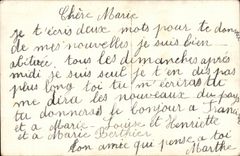 Chère Marie
je t'écris deux mots pour te donne
de mes nouvelles je suis bien
abituée, tous les dimanches après
midi je suis seul je t'en dis pas
plus long toi tu m'écriras tu
me dira les nouvelles du pays
tu donneras le bonjour a
et a Marie Louise et Henriette
et a Marie Berthier
ton amie qui pense a toi
Marthe